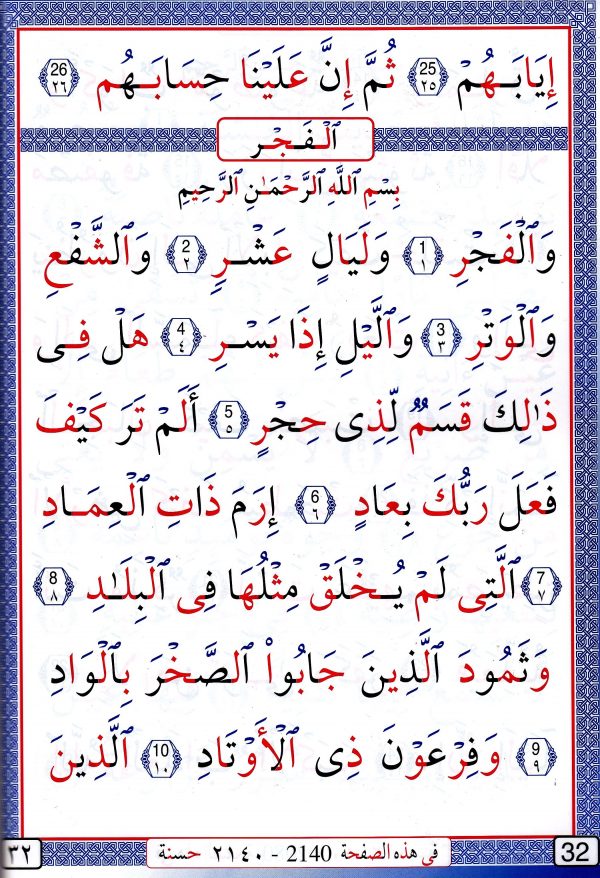 إِيَابَـهُمْ 25 ٢٥ ثُمَّ إِنَّ عَلَيْنَا حِسَابَـهُم 26 ٢٦
ٱلْـفَـجْـر
بِسْمِ ٱللَّهِ ٱلرَّحْمَـٰنِ ٱلرَّحِيمِ
وَٱلْفَجْرِ 1 ١ وَلَيَالٍ عَشْـرٍ 2 ٢ وَٱلشَّفْعِ
وَٱلْوَتْرِ 3 ٣ وَٱلَّيْلِ إِذَا يَسْـرِ 4 ٤ هَلْ فِـى
ذَٰلِكَ قَسَمٌ لِّذِى حِجْرٍ 5 ٥ أَلَمْ تَرَ كَيْفَ
فَعَلَ رَبُّكَ بِعَادٍ 6 ٦ إِرَمَ ذَاتِ ٱلْعِمَـادِ
7 ٧ ٱلَّتِى لَمْ يُـخْلَقْ مِثْلُهَا فِى ٱلْبِلَـٰدِ 8 ٨
وَثَمُودَ ٱلَّذِينَ جَابُوا۟ ٱلصَّخْرَ بِٱلْوَادِ
9 ٩ وَفِرْعَوْنَ ذِى ٱلْأَوْتَادِ 10 ١٠ ٱلَّذِينَ
32 في هذه الصفحة 2140 - ٢١٤٠ حسنة ٣٢